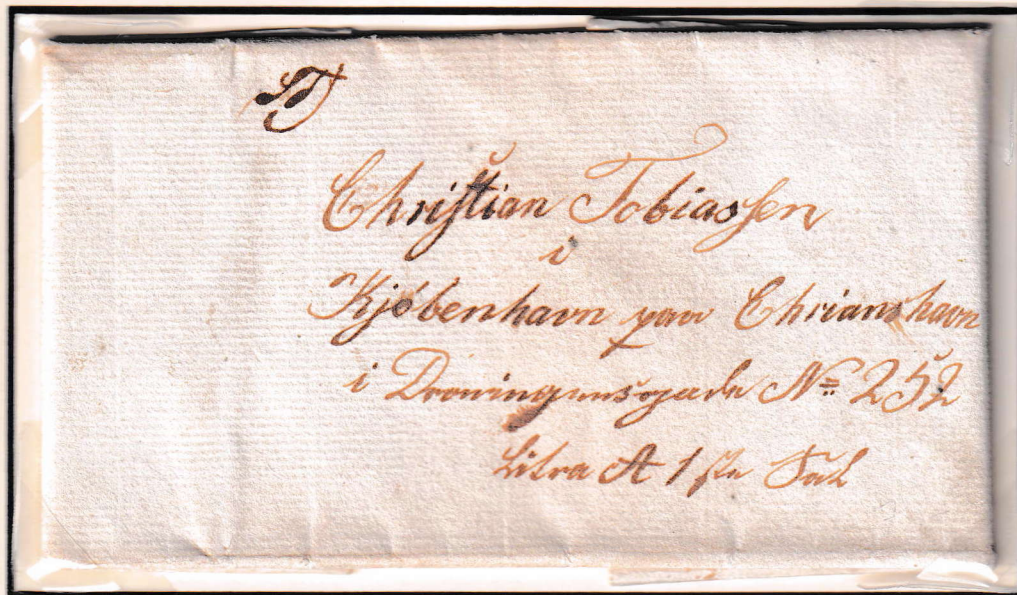 Christian Tobiassen
i
Kjøbenhavn paa Chrianshavn
i Droningensgade No 252
Litra A 1ste Sal